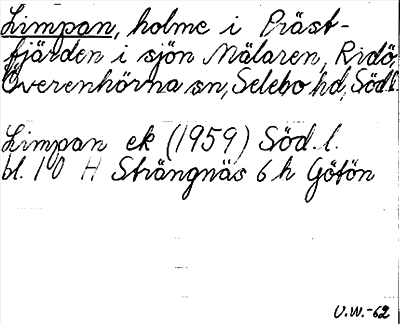 Limpan, holme i Präst-
fjärden i sjön Mälaren, Ridö,
Överenhörna sn, Selebo hd, Söd.l.
Limpan ek (1959) Söd.l.
bl. 10 H Strängnäs 6 h Götön
U.W.-62